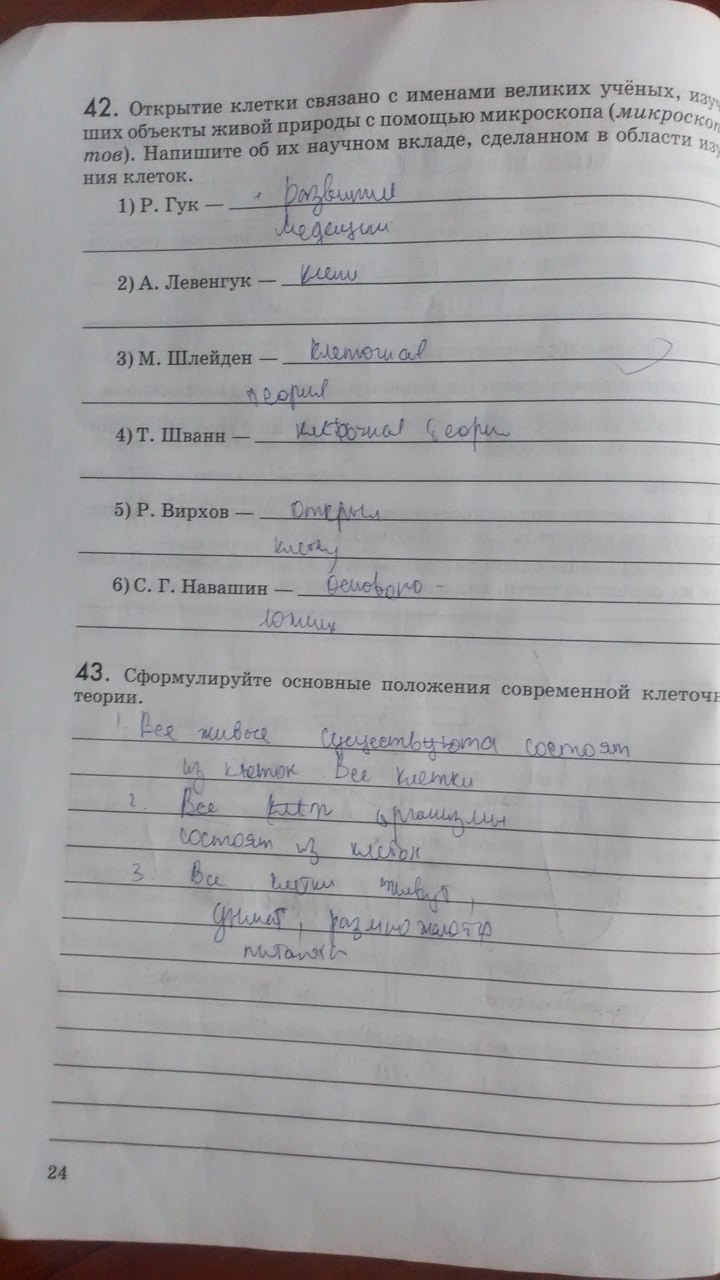 42. Открытие клетки связано с именами великих учёных, изуч
ших объекты живой природы с помощью микроскопа (микроскоп
тов). Напишите об их научном вкладе, сделанном в области изу
ния клеток.
1) Р. Гук —
2) А. Левенгук —
3) М. Шлейден — Клеточная
теория
4) Т. Шванн — клеточная теори
5) Р. Вирхов — открыл
клетку
6) С. Г. Навашин — Осново-
43. Сформулируйте основные положения современной клеточн
теории.
1. Все живые существуюта состоят
из клеток Все клетки
2. Все организмы
состоят из клеток
3. Все клетки живут,
дышат, размножаются
24